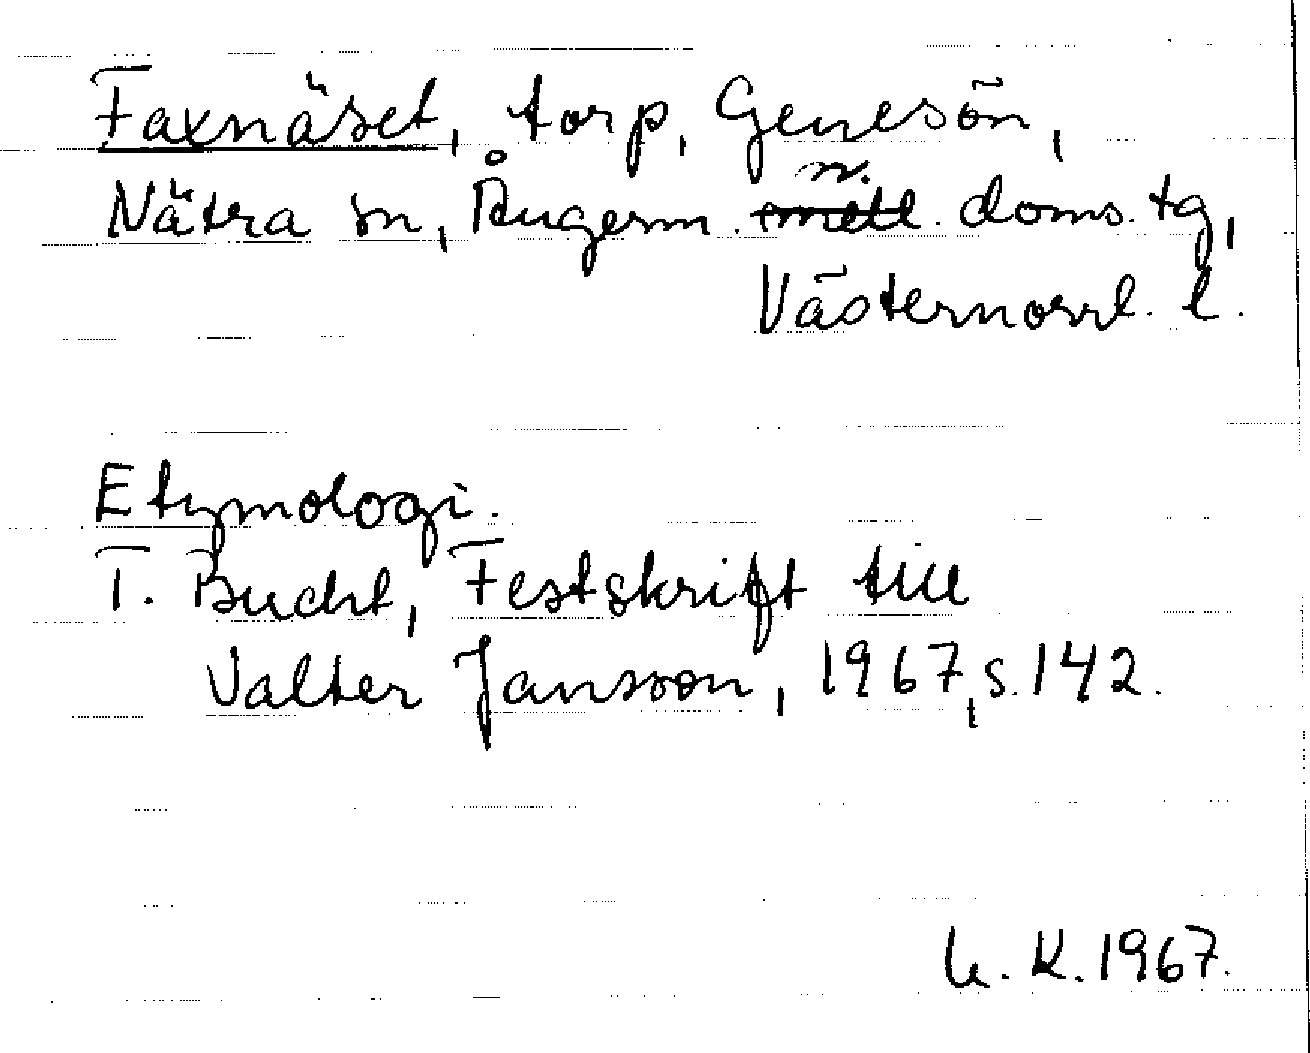 Faxnäset, torp, Genesön,
Nätra sn, Ångerm. n. doms. tg,
Västernorrl. l.
Etymologi.
T. Bucht, Festskrift till
Valter Jansson, 1967, s. 142.
K. 1967.